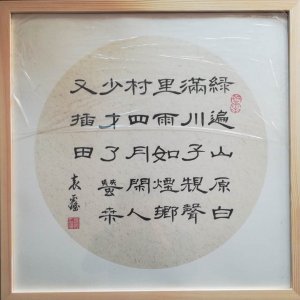 綠遍山原白
滿川子規聲
里雨如煙鄉
村四月閑人
少才了蠶桑
又插田
袁